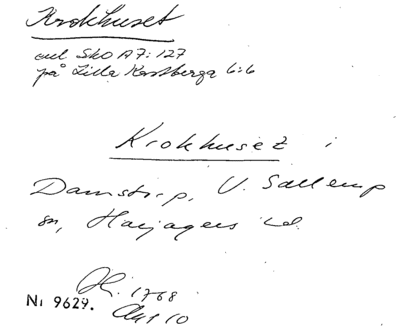 Krokhuset
enl Sko A7:127
på Lilla Karlberga 6:6
Krokhuset i
Damstorp, V. Sallerup
sn, Harjagers hd.
H. 1768
Akt 10
Nr 9629.